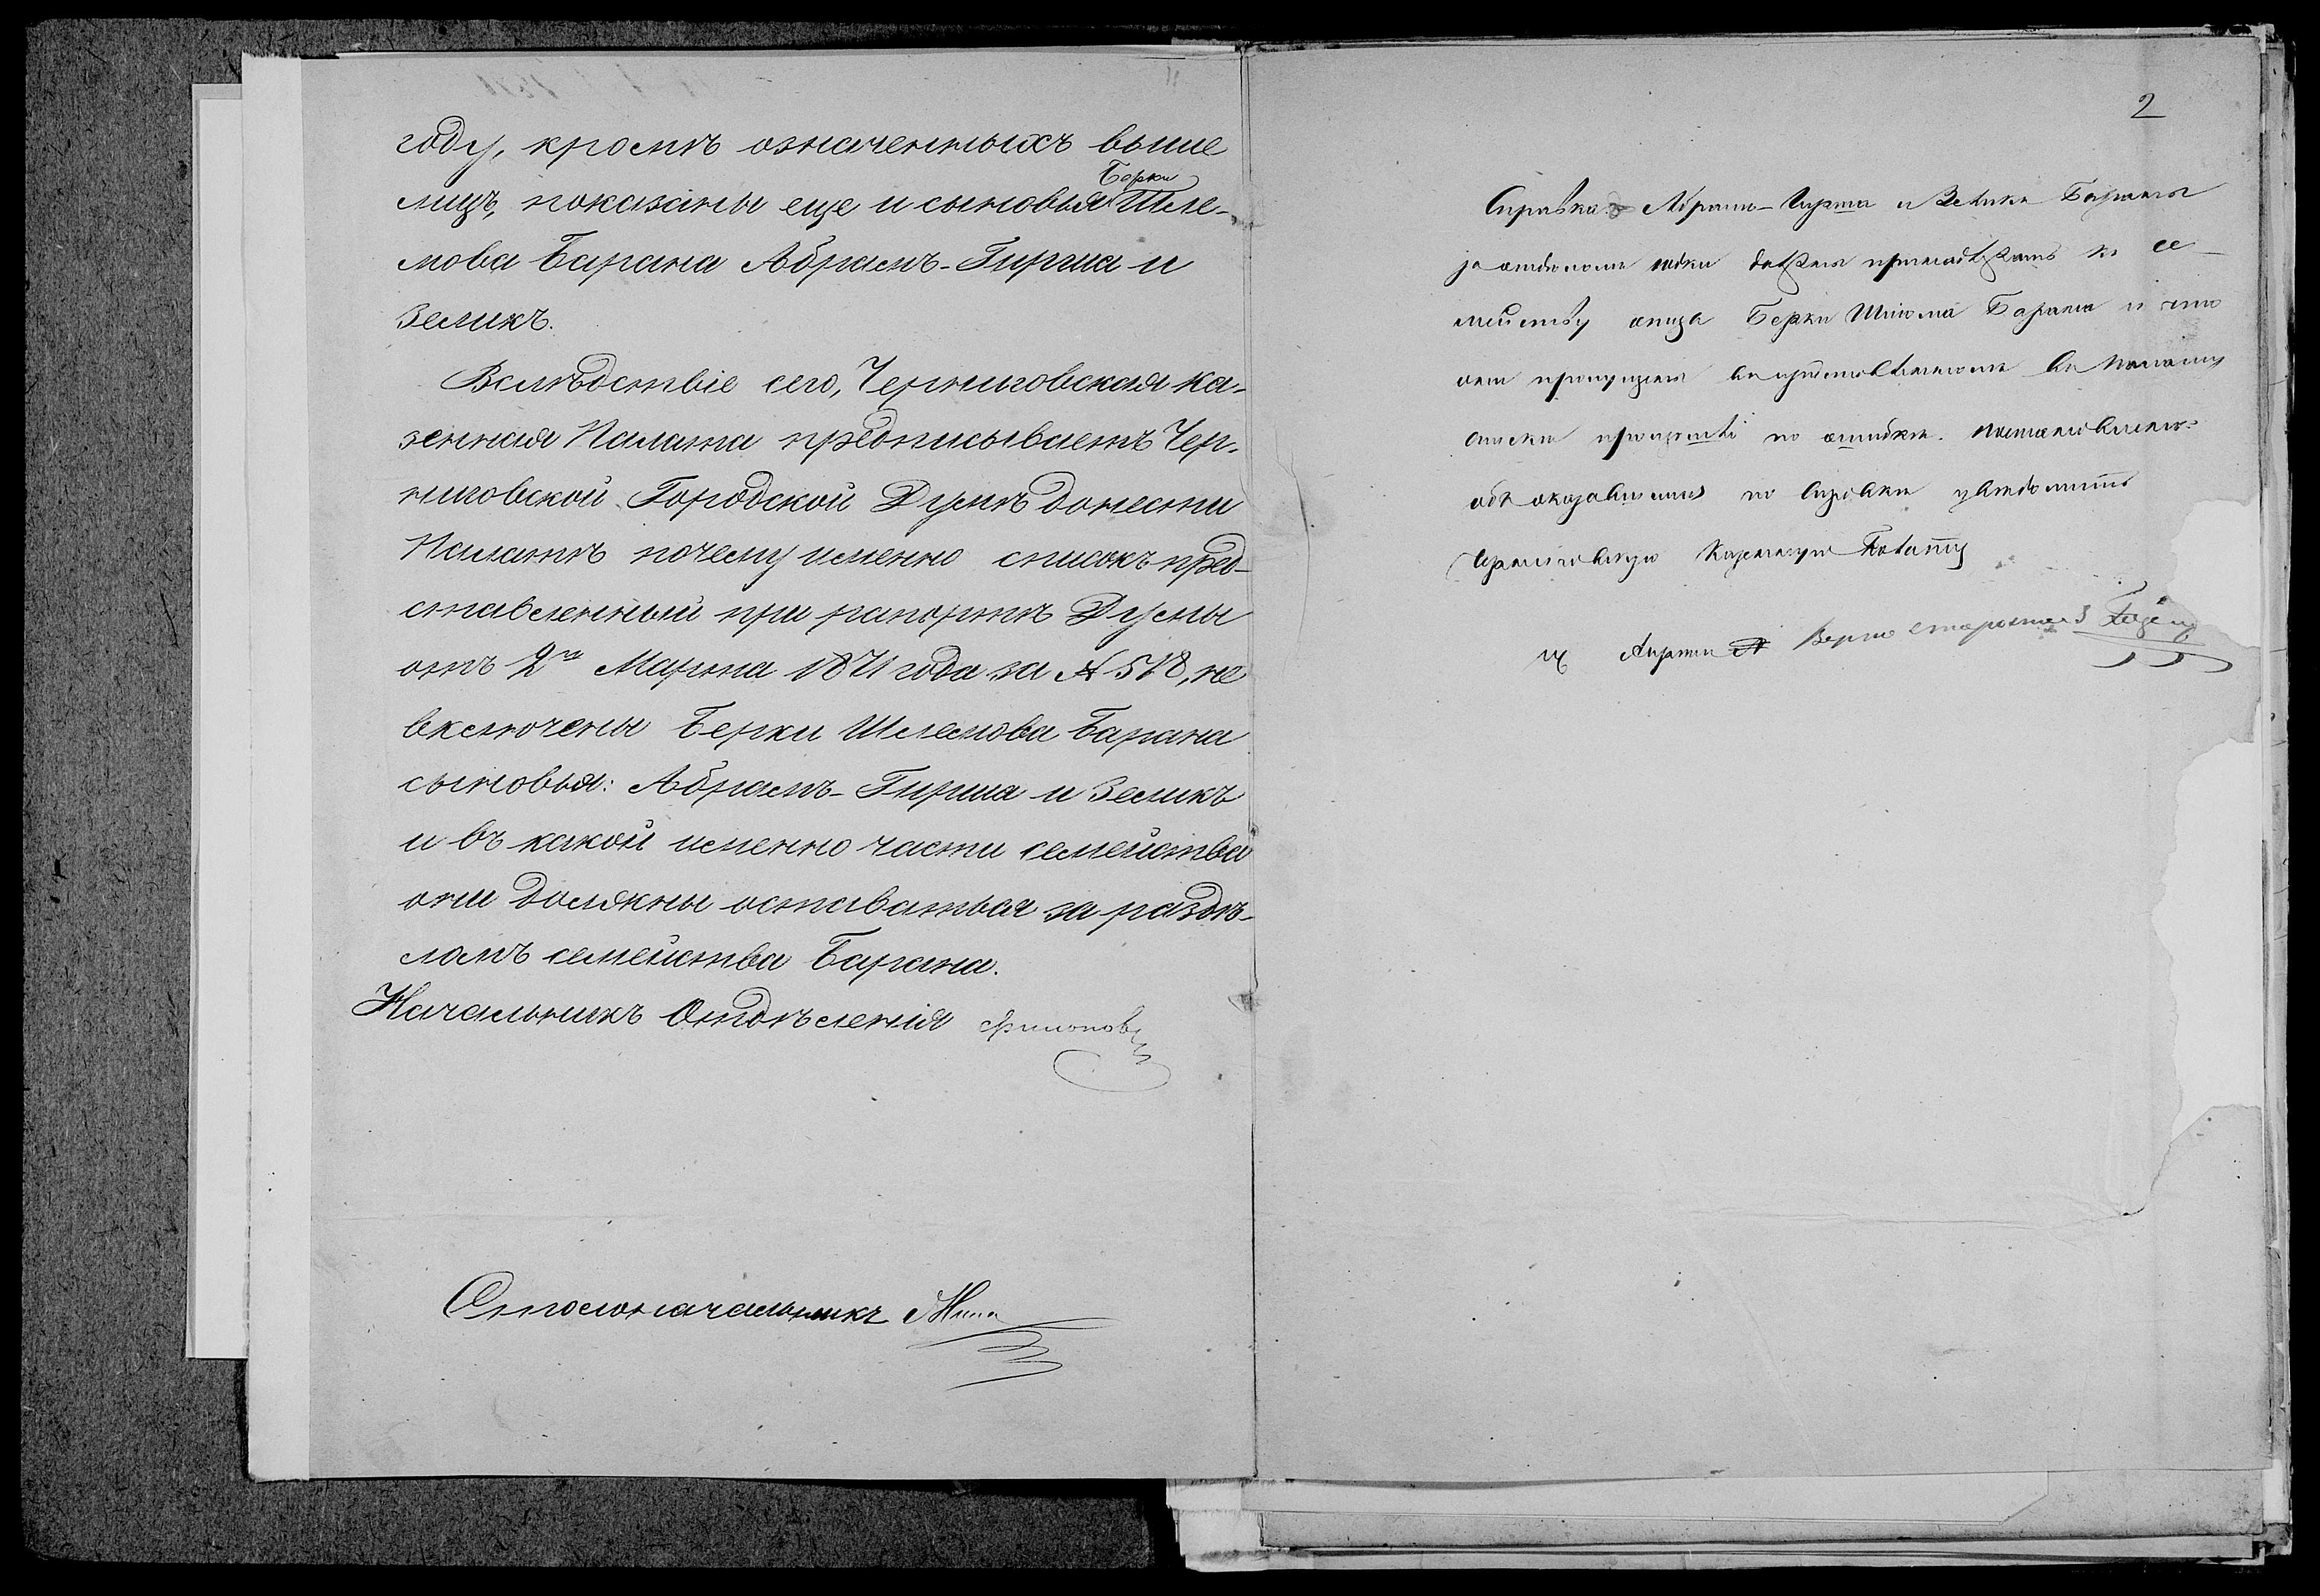 году, кромѣ означенныхъ выше
Берки
лицъ, показаны еще и сыновья Шле-
мова Барана Абрамъ-Гирша и
Зеликъ.
Вслѣдствіе сего, Черниговская Ка-
зенная Палата предписываетъ Чер-
ниговской Городской Думѣ донести
Палатѣ почему именно списокъ пред-
ставленный при рапортѣ Думы
отъ 2го Марта 1871 года за № 518, не
включены Берки Шлемова Барана
сыновья: Абрамъ-Гирша и Зеликъ
и въ какой именно части семейства
они должны оставаться за раздѣ-
ломъ семейства Барана.
Начальникъ Отдѣленія
Столоначальникъ
2
Справка. Абрамъ-Гирша и Зеликъ Бараны
должны принадлежать къ се-
мейству отца Берки Шлиома Барана и что
они пропущены въ
по ошибкѣ.
объ оказавшемся по справкѣ увѣдомить
Черниговскую Казенную Палату
Апрѣля Вѣрно Староста З